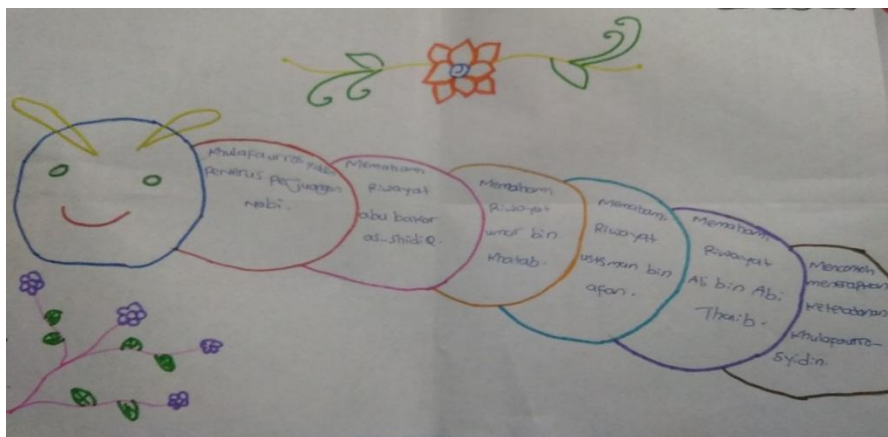 Khulapaurrosyidin
penerus perjuangan
Nabi.
Memahami
Riwayat
abu bakar
as-shidiq.
Memahami
Riwayat
umar bin
Khatab.
Memahami
Riwayat
ustsman bin
afan.
Memahami
Riwayat
Ali bin Abi
Thalib.
Mencontoh
menerapkan
Keteladanan
Khulapaurro-
syidin.